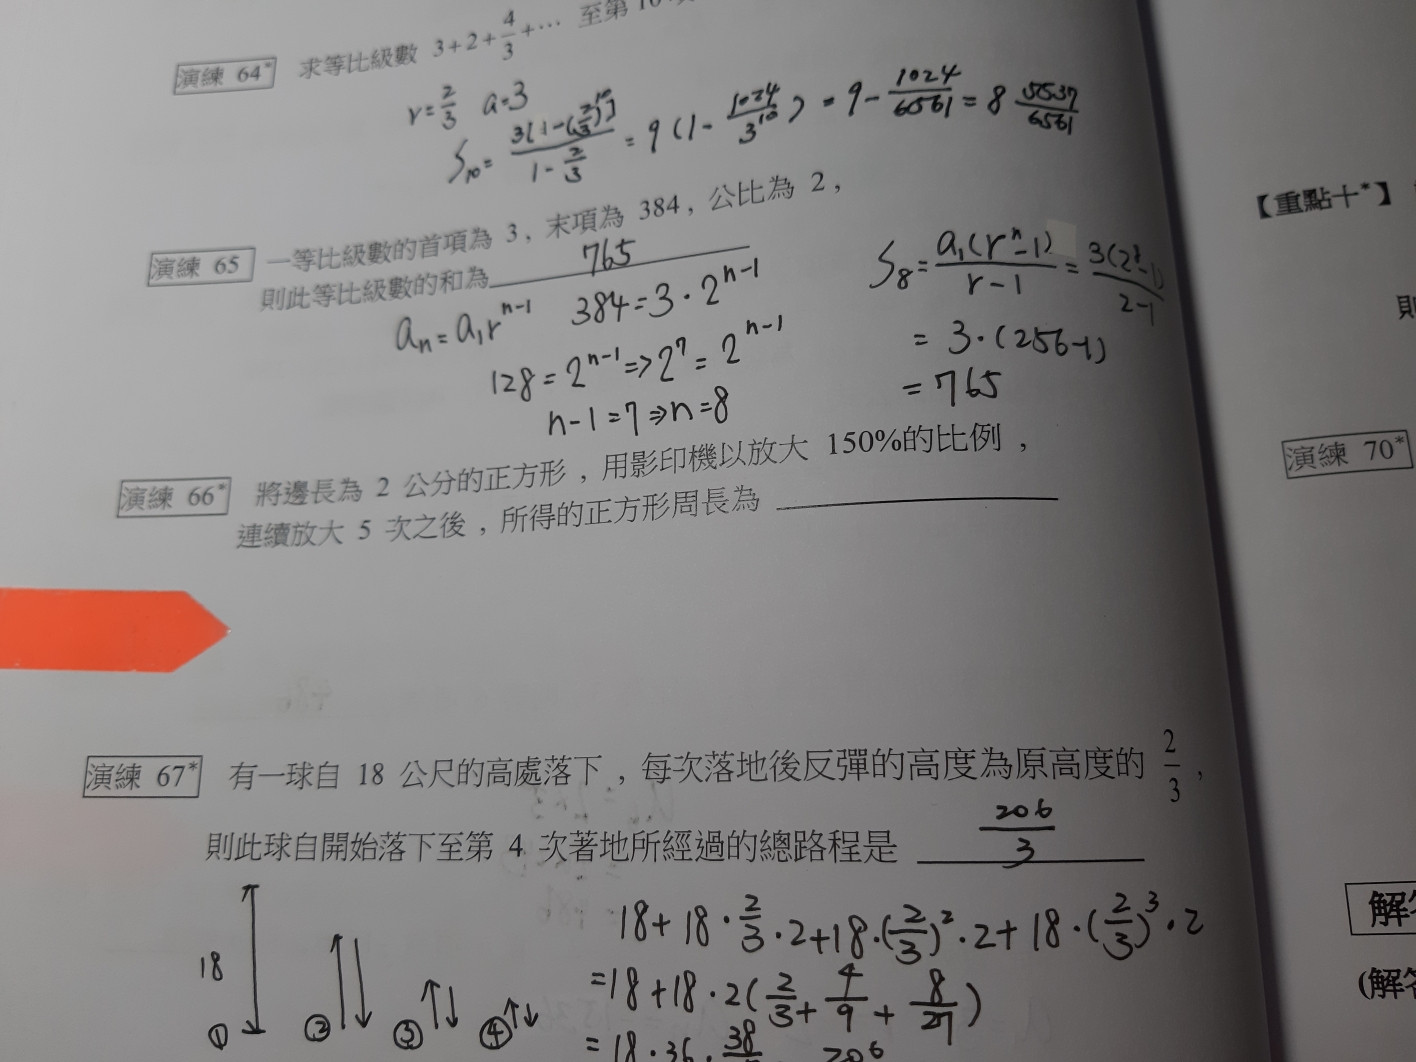 演練 64* 求等比級數 3+2+4/3+⋯ 至第10
r=2/3 a=3
S₁₀=3[1-(2/3)¹⁰]/(1-2/3)=9(1-1024/3¹⁰)=9-1024/6561=8 5537/6561
演練 65 一等比級數的首項為 3，末項為 384，公比為 2，
則此等比級數的和為 765
aₙ=a₁rⁿ⁻¹ 384=3·2ⁿ⁻¹
128=2ⁿ⁻¹⇒2⁷=2ⁿ⁻¹
n-1=7⇒n=8
S₈=a₁(rⁿ-1)/(r-1)=3(2⁸-1)/(2-1)
=3·(256-1)
=765
演練 66* 將邊長為 2 公分的正方形，用影印機以放大 150%的比例，
連續放大 5 次之後，所得的正方形周長為
演練 67* 有一球自 18 公尺的高處落下，每次落地後反彈的高度為原高度的 2/3，
則此球自開始落下至第 4 次著地所經過的總路程是 206/3
18 ① ② ③ ④
18+18·2/3·2+18·(2/3)²·2+18·(2/3)³·2
=18+18·2(2/3+4/9+8/27)
=18·36·38 206
【重點十*】
則
演練 70*
解答
(解答